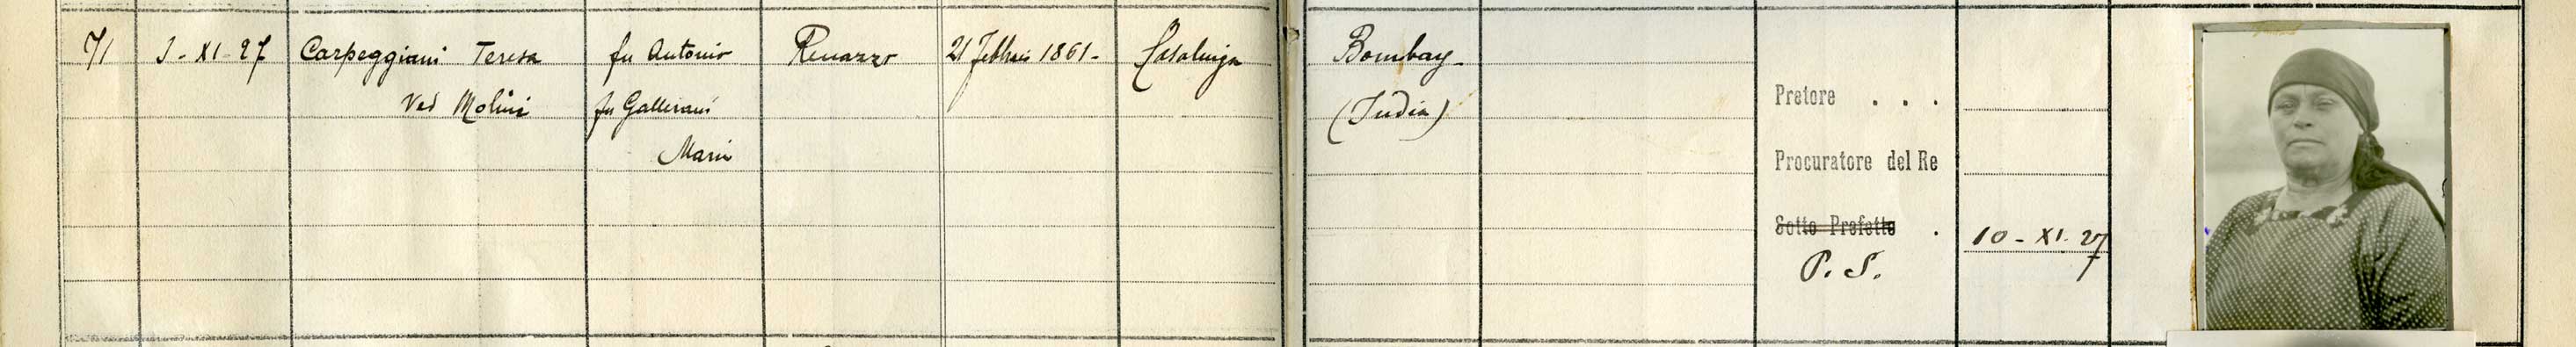 71 3-XI-27 Carpeggiani Teresa fu Antonio Renazzo 21 Febbraio 1861- Casalinga Bombay-
Ved Molini fu Gallerani (India)
Maria
Pretore . . .
Procuratore del Re
Sotto Prefetto . 10-XI-27
P. S.